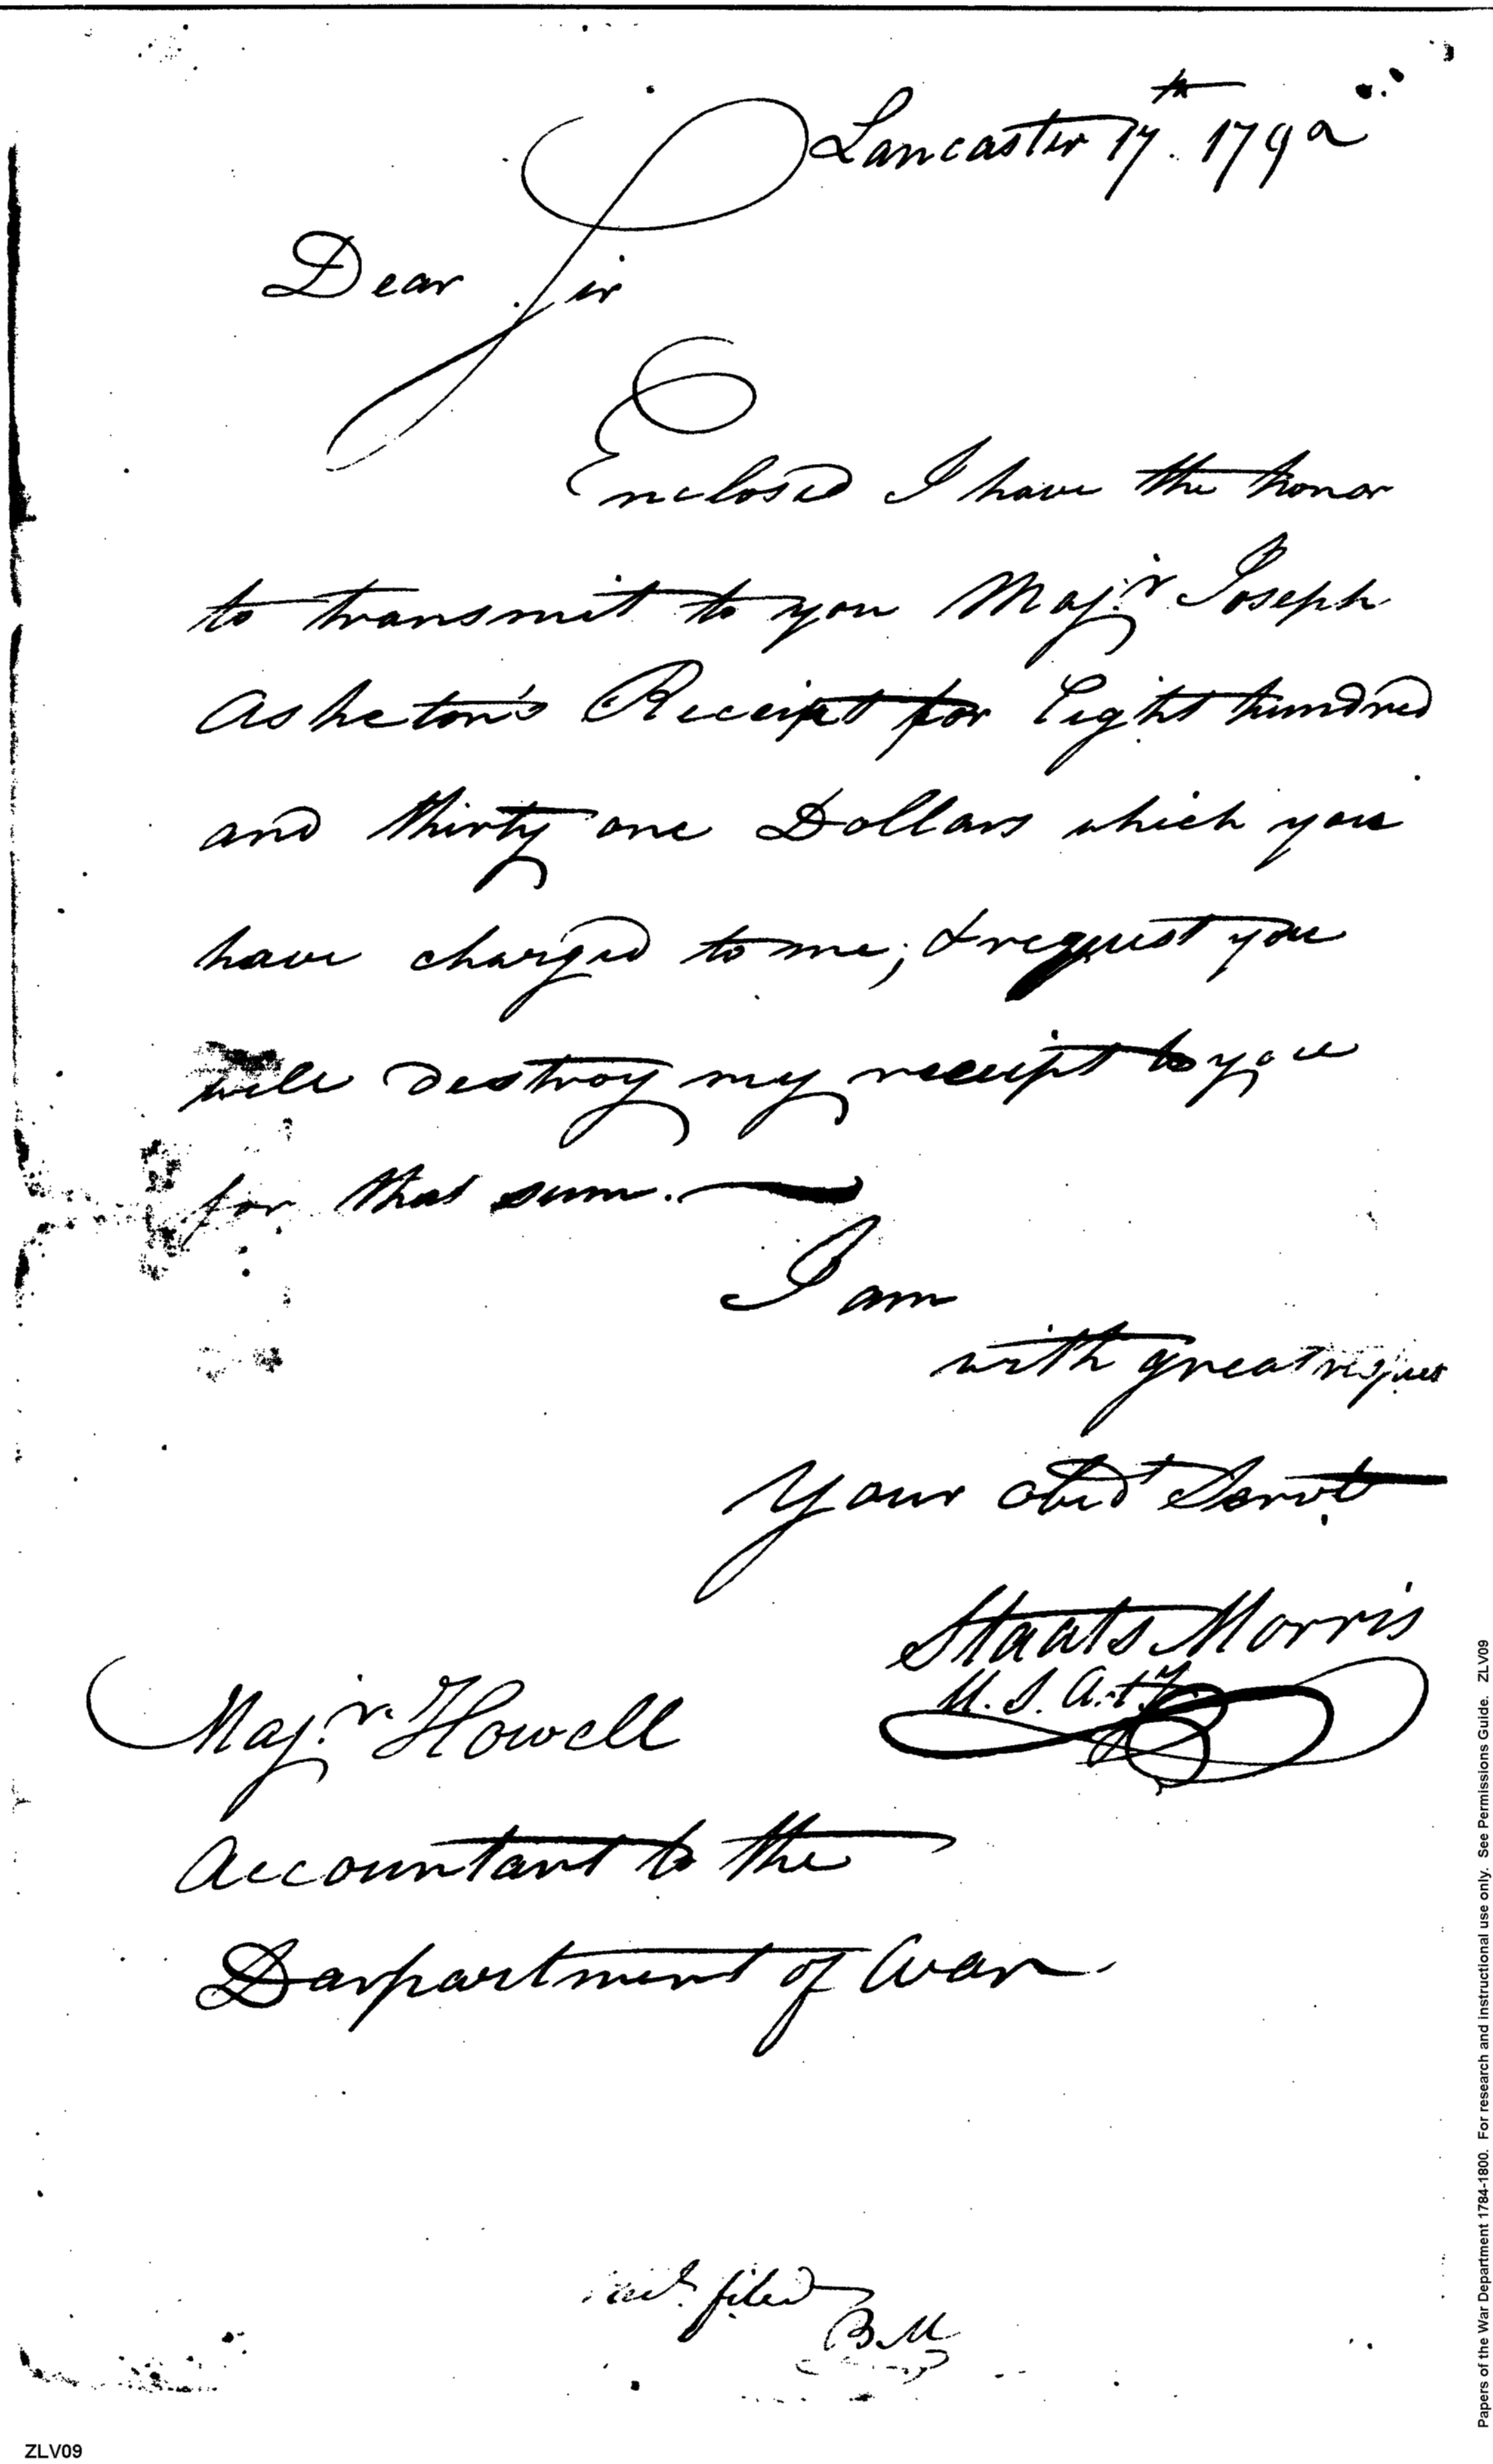 Lancaster 17th. 1792
Dear Sir
Enclosed I have the honor
to transmit to you Maj:r Joseph
Asheton's Receipt for Eight hundred
and thirty one Dollars which you
have charged to me; & request you
will destroy my receipt to you
for that sum.
I am
with great respect
Your obed Servt
Staats Morris
U. S. Arty
Maj:r. Howell
Accountant to the
Darpartment of War
filed
BM
Papers of the War Department 1784-1800. For research and instructional use only. See Permissions Guide. ZLV09
ZLV09